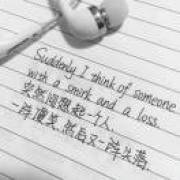 Suddenly I think of someone
with a smirk and a loss.
突然间想起一个人,
一阵傻笑,然后又一阵失落.